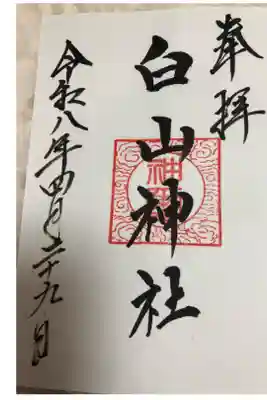 奉拝
白山神社
令和八年四月二十九日